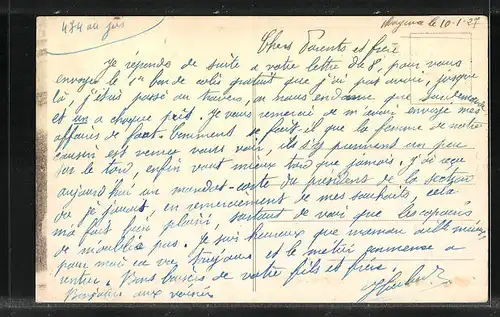 474 au jus
Mayence le 10-1-27
Chers Parents et frère
Je réponds de suite a votre lettre du 8, pour vous
envoyer le 1er bon de colis gratuit que j'ai pas avoir, jusque
là, j'étais passé au travers, on nous en donne que
et un a chaque fois. Je vous remercie de m'avoir envoyé mes
affaires de foot. Comment se fait-il que la femme de notre
cousin est venue vous voir, ils s'y prennent un peu
sur le tard, enfin vaut mieux tard que jamais. J'ai reçu
aujourd'hui un mandat-carte du président de la section
où je jouais, en remerciement de mes souhaits, cela
m'a fait bien plaisir, surtout de voir que les copains
ne m'oublie pas. Je suis heureux que maman aille mieux,
pour moi ca va toujours et le metier commence a
rentrer. Bons baisers de votre fils et frère.
Bonjour aux voisins